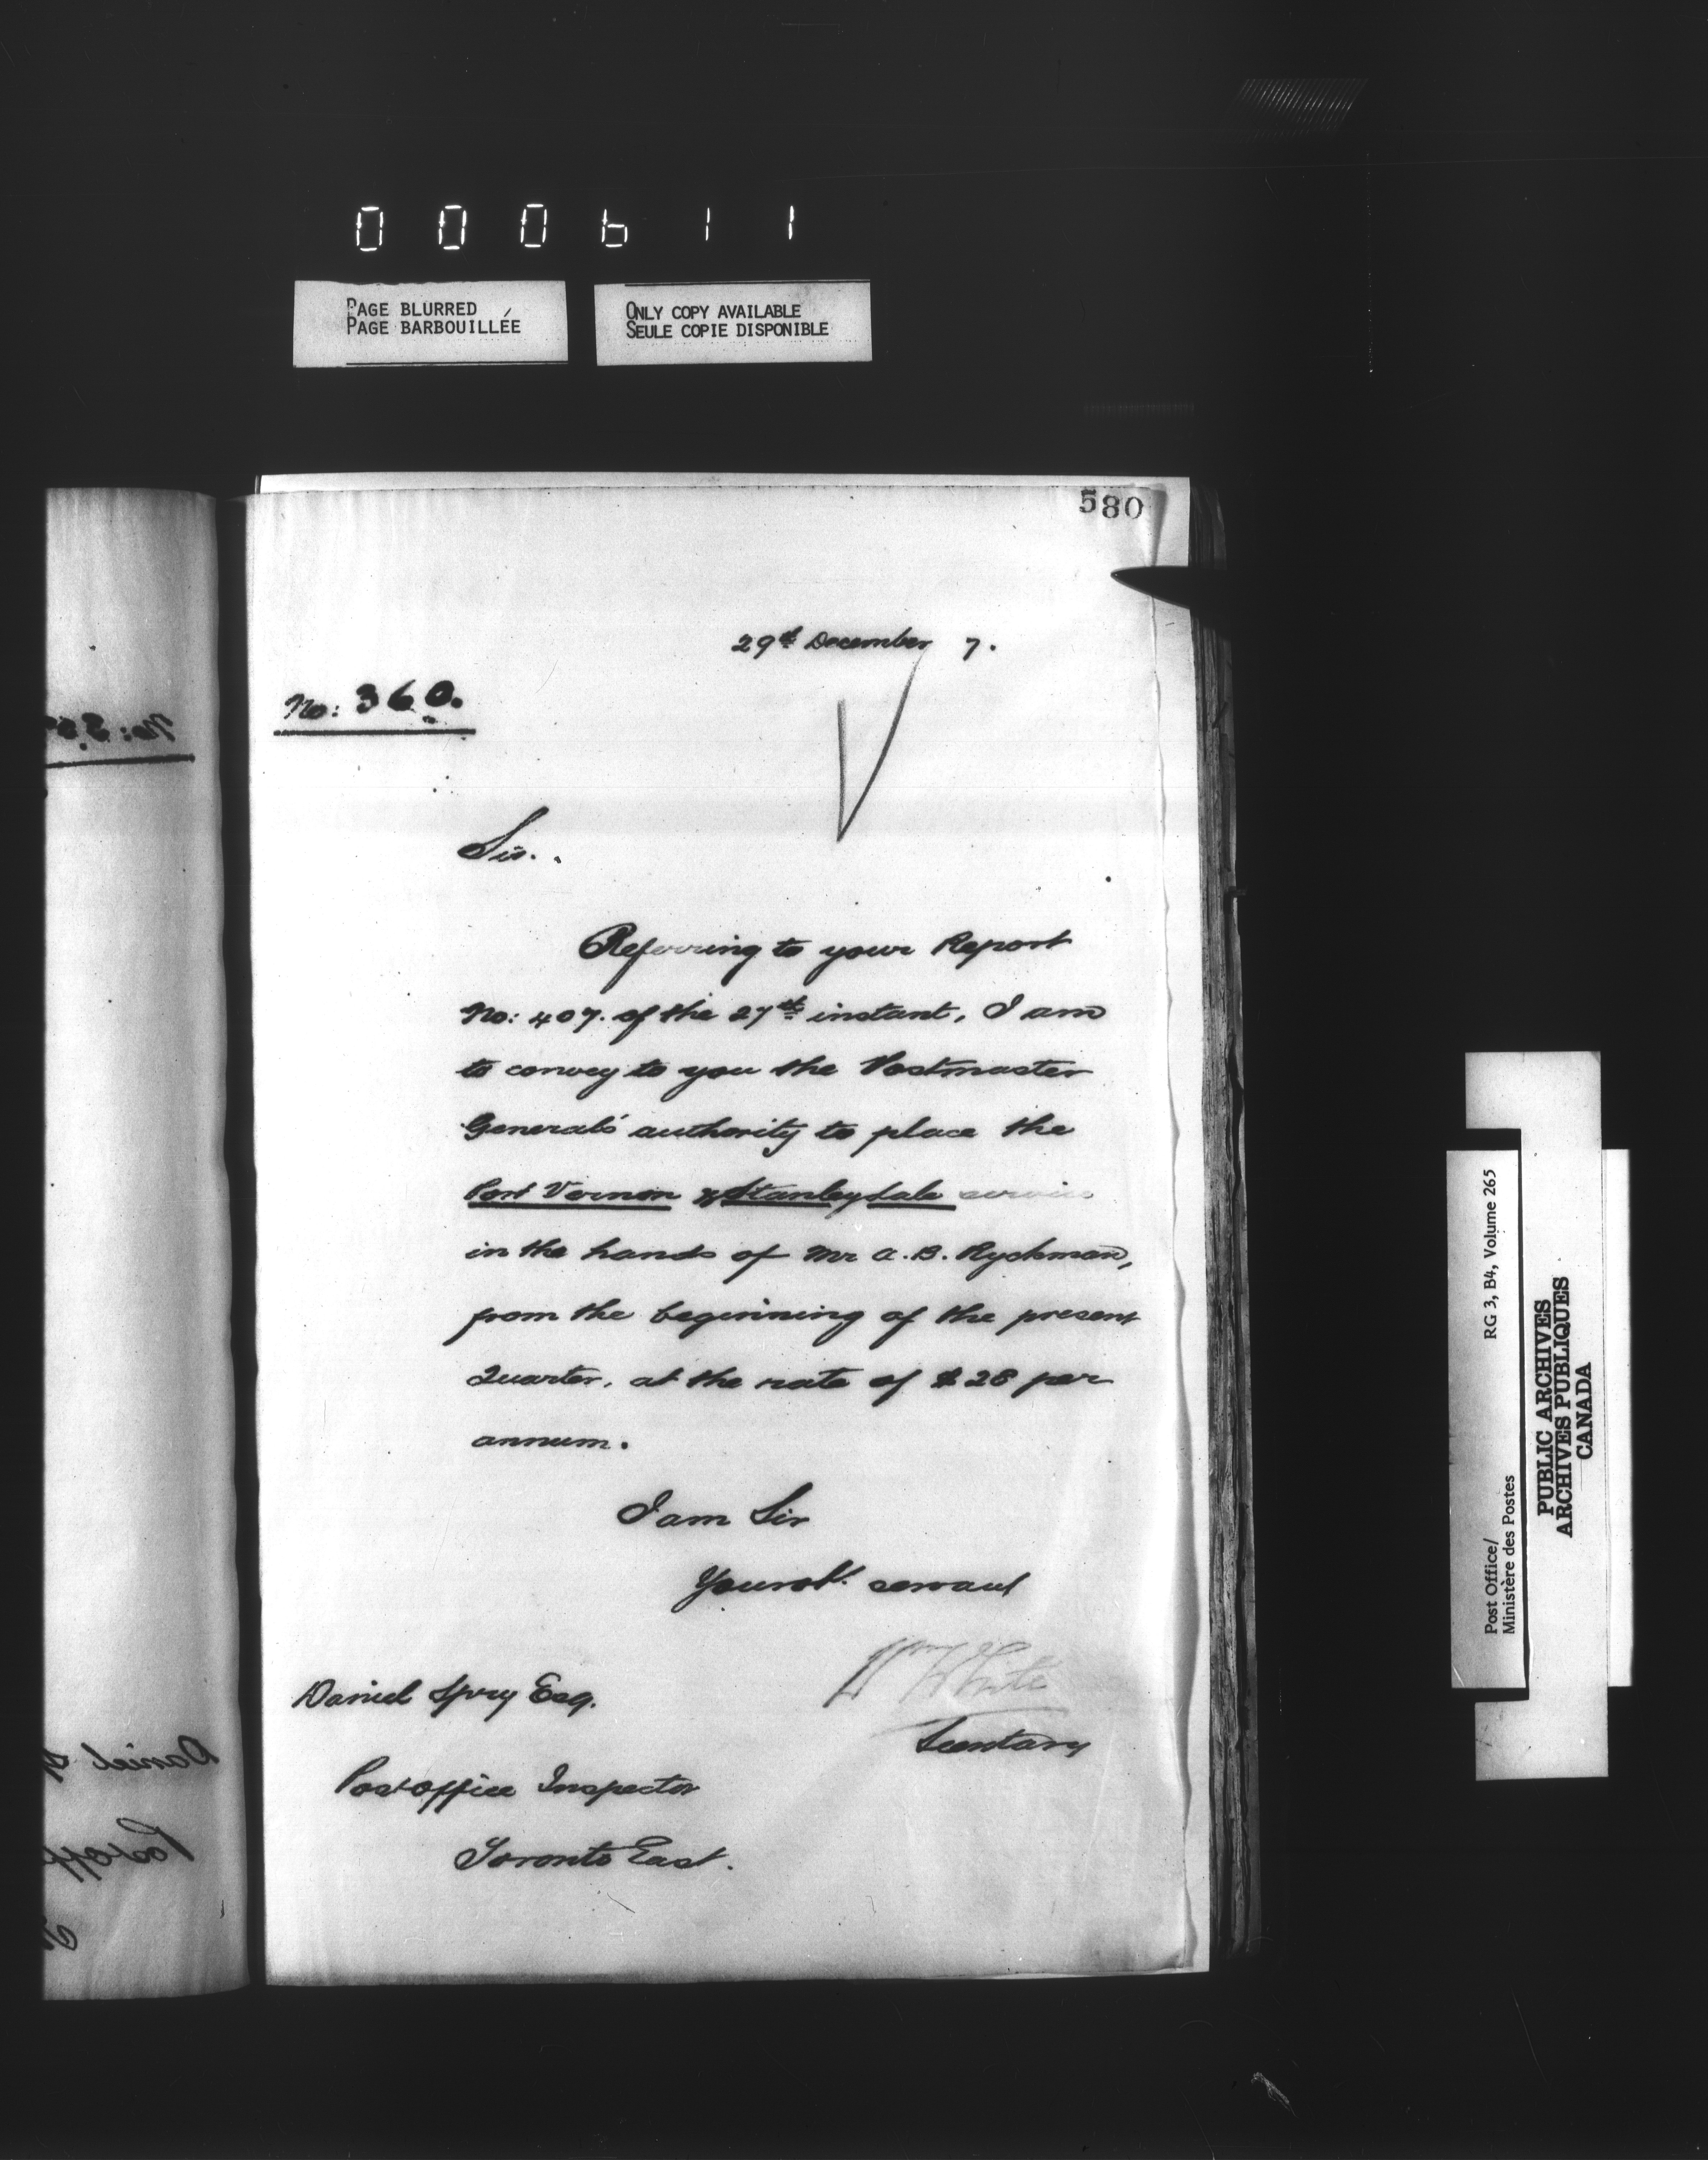 000611
PAGE BLURRED
PAGE BARBOUILLÉE
ONLY COPY AVAILABLE
SEULE COPIE DISPONIBLE
580
29th December 7.
No: 360.
Sir.
Referring to your Report
No: 407. of the 27th instant, I am
to convey to you the Postmaster
General's authority to place the
Port Vernon & Stanleydale service
in the hands of Mr A. B. Ryckman,
from the beginning of the present
Quarter, at the rate of $28 per
annum.
I am Sir
Your obt. servant
Wm White
Secretary
Daniel Spry Esq.
Post office Inspector
Toronto East.
Post Office/
Ministère des Postes
RG 3, B4, Volume 265
PUBLIC ARCHIVES
ARCHIVES PUBLIQUES
CANADA